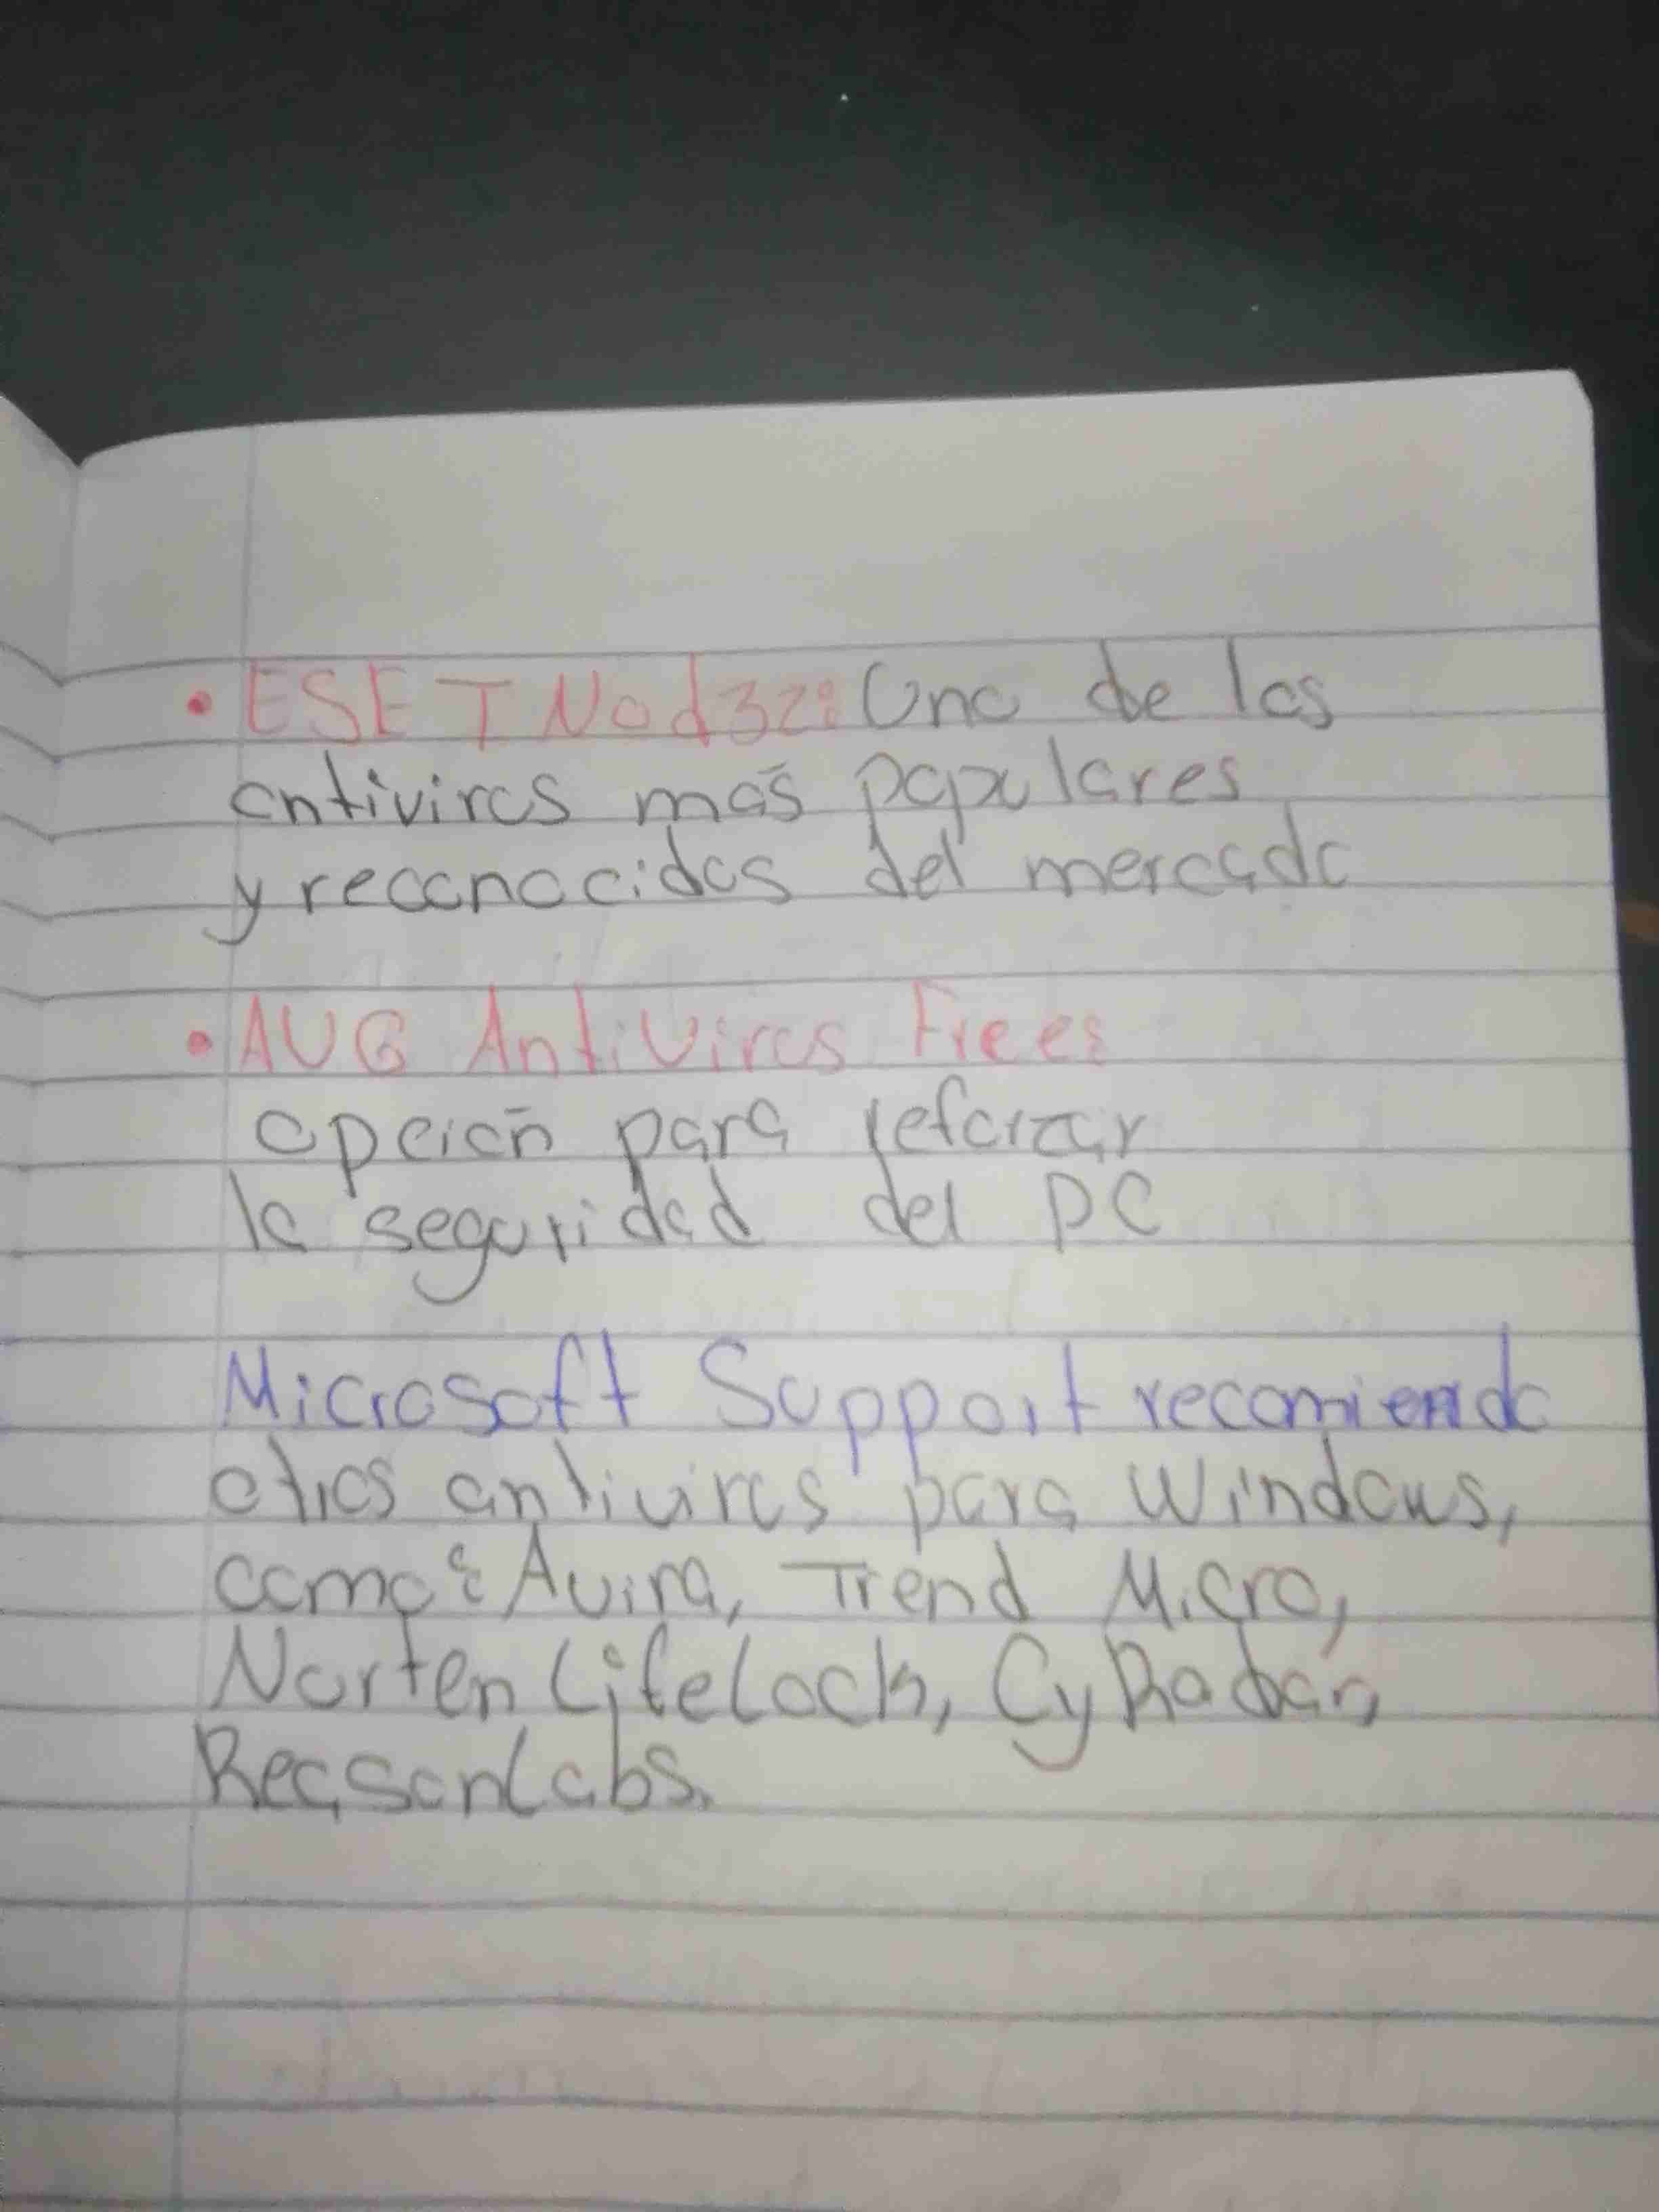 • ESET Nod32: Uno de los
antiviros más populares
y reconocidos del mercado
• AVG Antiviros Free:
opción para reforzar
la seguridad del PC
Microsoft Support recomienda
otros antiviros para Windows,
como: Avira, Trend Micro,
Norten LifeLock, CyRadar,
ReasonLabs.